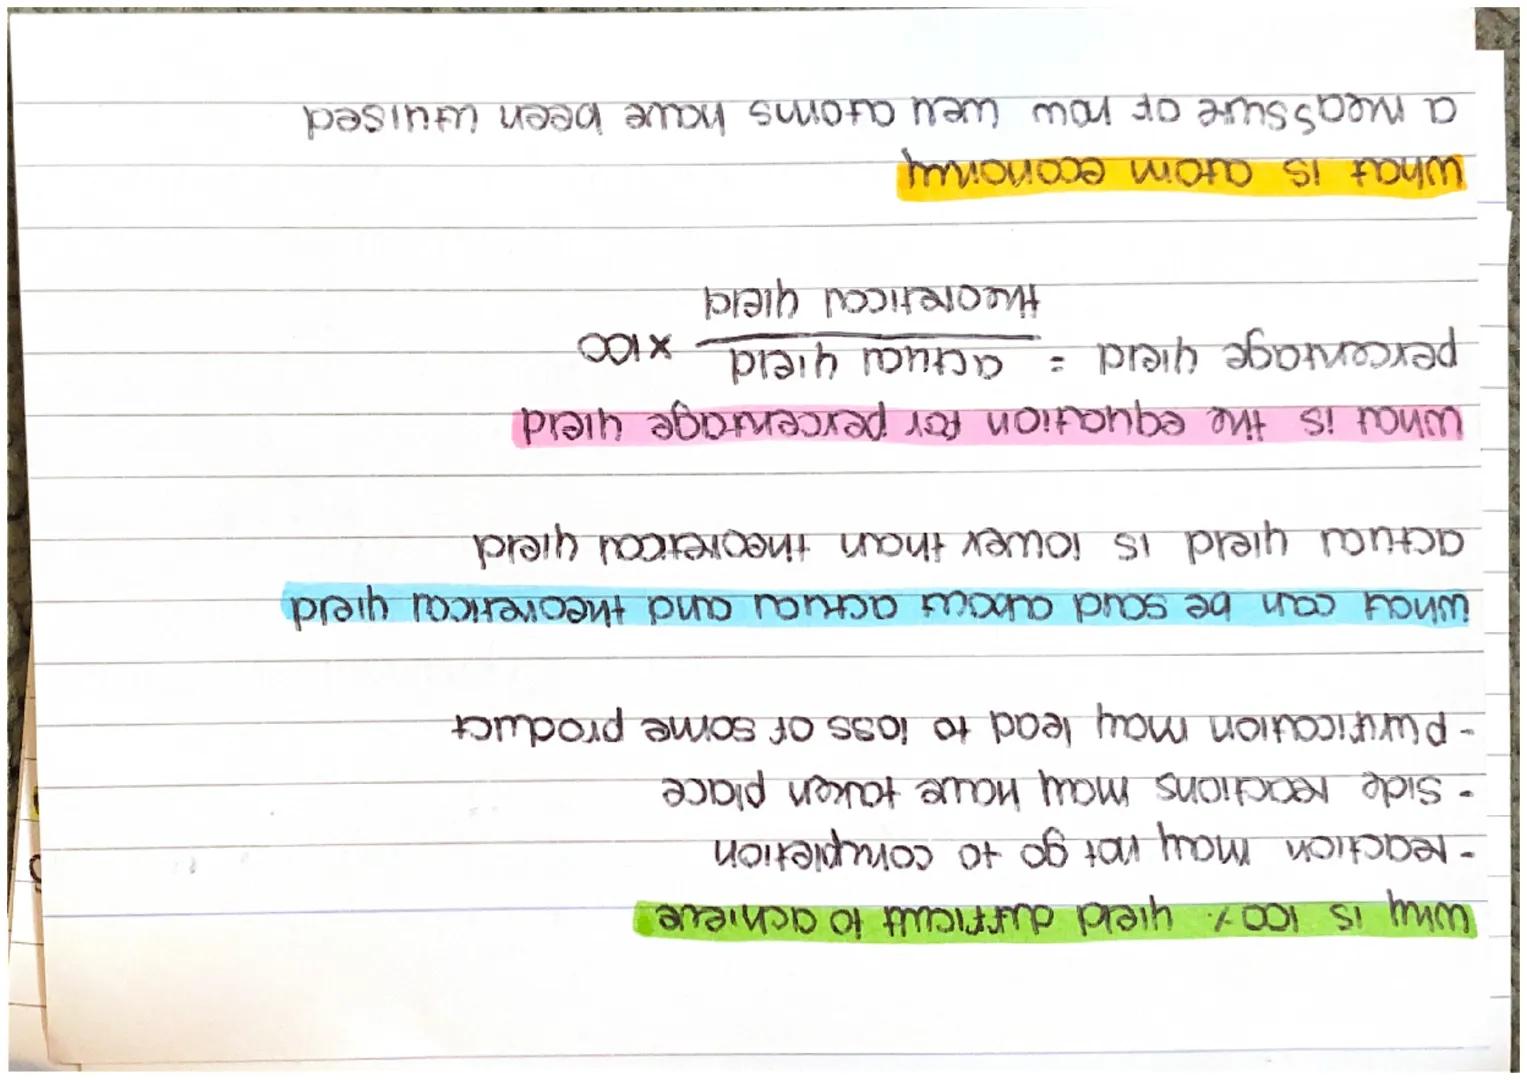 why is 100% yield difficult to achieve
- reaction may not go to completion
- side reactions may have taken place
- purification may lead to loss of some product
what can be said about actual and theoretical yield
actual yield is lower than theoretical yield
what is the equation for percentage yield
percentage yield = actual yield x100
theoretical yield
what is atom economy
a meassure of how well atoms have been utilised